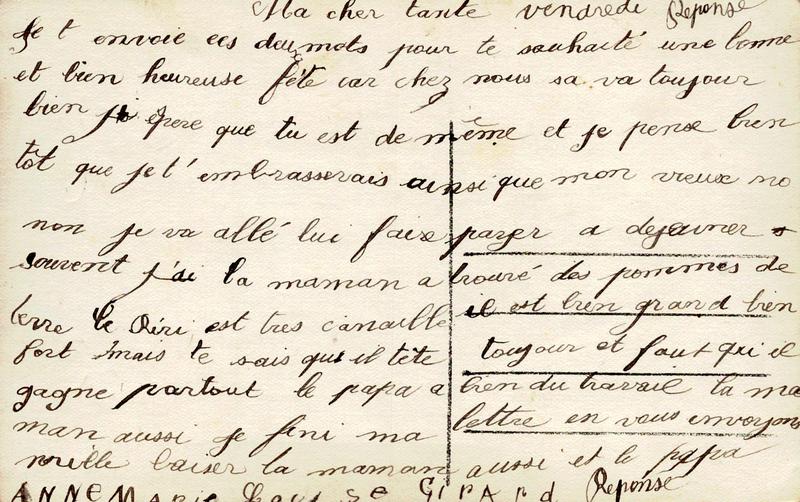 Ma cher tante vendredi Reponse
Je t envoie ces deux mots pour te souhaité une bonne
et bien heureuse fête car chez nous sa va toujour
bien j'espere que tu est de même et je pense bien
tôt que je t'embrasserais ainsi que mon vieux no
non je va allé lui faire payer a dejeuner
souvent j'ai la maman a trouvé des pommes de
terre le Riri est tres canaille il est bien grand bien
fort mais te sais qui il tête toujour et faut qui il
gagne partout le papa a bien du travail la ma
man aussi je fini ma lettre en vous envoyons
mille baiser la maman aussi et le papa
ANNE Marie GirArd Reponse